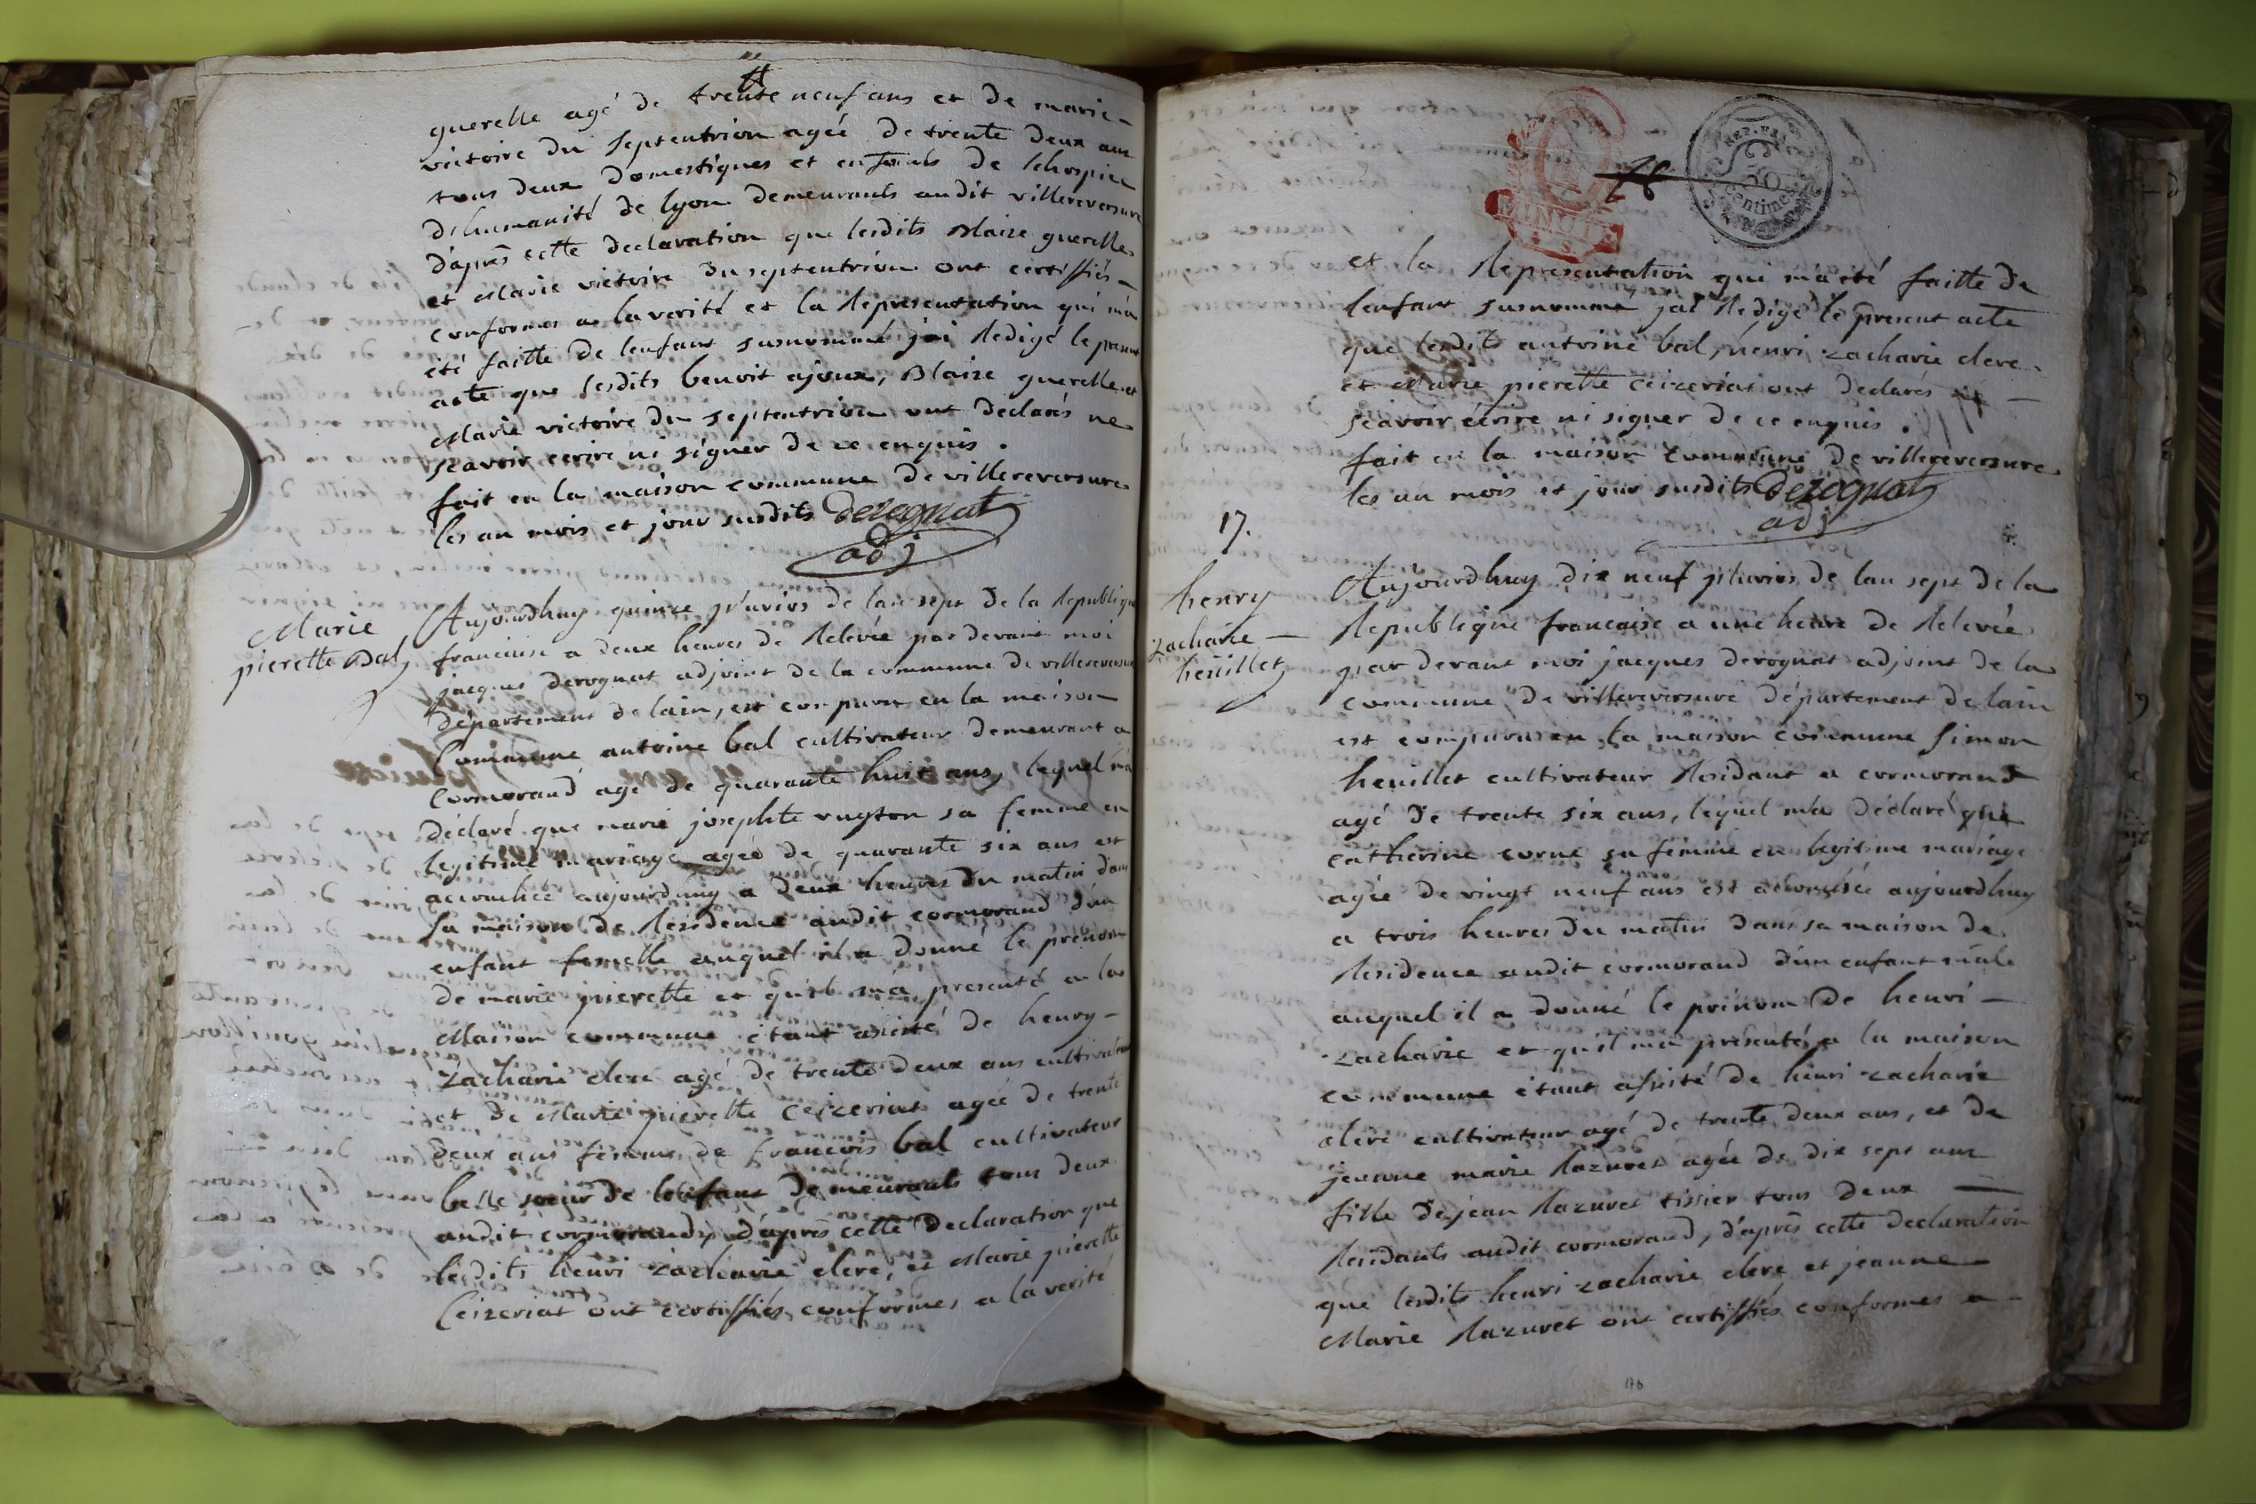 querelle agé de trente neuf ans et de marie
victoire du septentrion agée de trente deux ans
tous deux domestiques et enfants de lhospice
dhumanité de lyon demeurants audit villereversure
d'après cette declaration que lesdits Blaize querelle
et Marie victoire du septentrion ont certiffiés
conformes a la verité et la Representation qui m'a
été faitte de lenfant susnommé jai Redigé le present
acte que lesdits benoit ajoux, Blaize querelle et
Marie victoire du septentrion ont declarés ne
scavoir ecrire ni signer de ce enquis.
fait en la maison commune de villereversure
les an mois et jour susdits derognat
adj
Marie
pierette Bal
Aujourdhuy quinze pluvios de lan sept de la Republique
francaise a deux heures de Relevée par devant moi
jacques derognat adjoint de la commune de villereversure
département de lain, est comparu en la maison
Commune antoine bal cultivateur demeurant a
Cormorand agé de quarante huit ans, lequel m'a
déclaré que marie josephte rugton sa femme en
legitime mariage agée de quarante six ans est
accouchée aujourdhuy a deux heures du matin dans
sa maison de Residence audit cormorand d'un
enfant femelle auquel il a donné le prénom
de marie pierette et qu'il m'a presenté a la
Maison commune étant asisté de henry
Zacharie clere agé de trente deux ans cultivateur
et de Marie pierette Ceizeriat agée de trente
deux ans femme de francois bal cultivateur
belle soeur de lenfant demeurants tous deux
audit cormorand, d'après cette declaration que
lesdits henri zacharie clere, et Marie pierette
Ceizeriat ont certiffiés conformes a la verité
MINUTE
30
Centimes
et la Representation qui m'a été faitte de
lenfant susnommé jai Redigé le présent acte
que lesdits antoine bal, henri zacharie clere
et Marie pierette Ceizeriat ont declarés
scavoir écrire ni signer de ce enquis.
fait en la maison commune de villereversure
les an mois et jour susdits derognat
adj
17.
henry
zacharie
heuillet
Aujourdhuy dix neuf pluvios de lan sept de la
Republique francaise a une heure de Relevée
par devant moi jacques derognat adjoint de la
commune de villereversure département de lain
est comparu en la maison commune simon
heuillet cultivateur Residant a cormorand
agé de trente six ans, lequel m'a déclaré que
catherine corne sa femme en legitime mariage
agée de vingt neuf ans est accouchée aujourdhuy
a trois heures du matin dans sa maison de
Residence audit cormorand d'un enfant mâle
auquel il a donné le prénom de henri
zacharie et qu'il m'a présenté a la maison
commune étant asisté de henri zacharie
clere cultivateur agé de trente deux ans, et de
jeanne marie Mazuret agée de dix sept ans
fille de jean Mazuret tissier tous deux
Residants audit cormorand, d'après cette declaration
que lesdits henri zacharie clere et jeanne
Marie Mazuret ont certiffiés conformes a
176